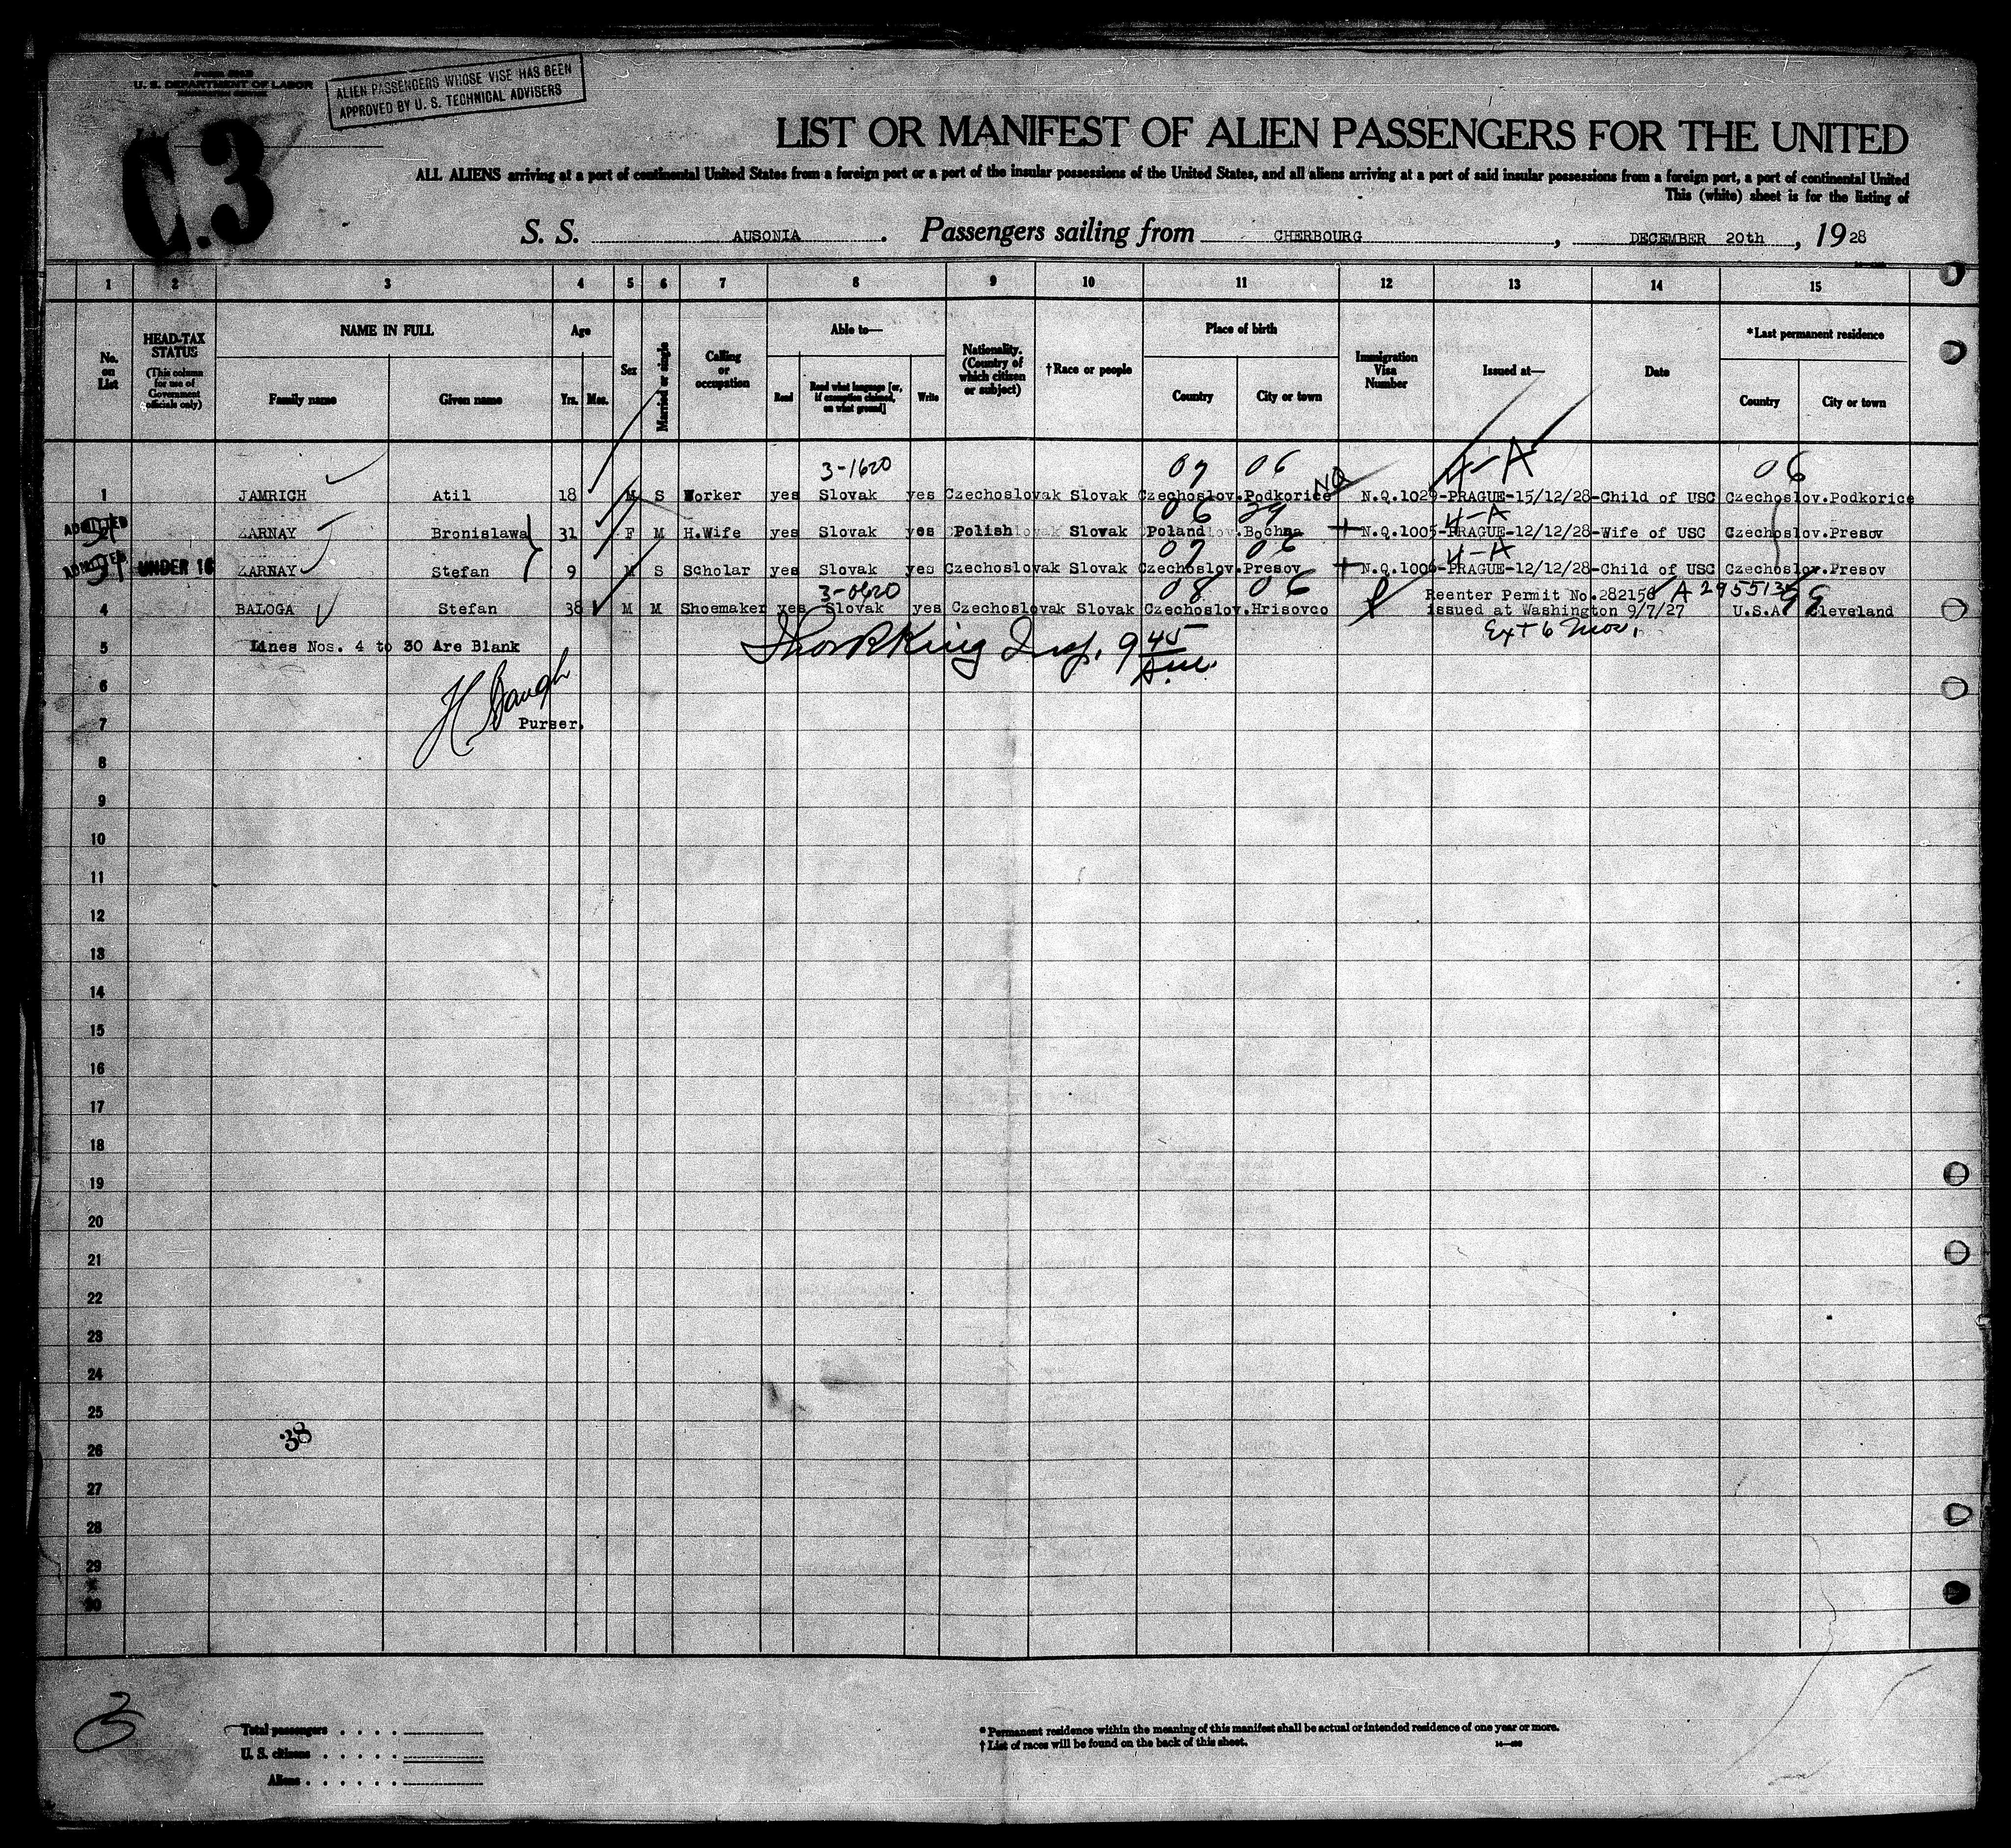 U. S. DEPARTMENT OF LABOR
ALIEN PASSENGERS WHOSE VISE HAS BEEN
APPROVED BY U. S. TECHNICAL ADVISERS
C.3
LIST OR MANIFEST OF ALIEN PASSENGERS FOR THE UNITED
ALL ALIENS arriving at a port of continental United States from a foreign port or a port of the insular possessions of the United States, and all aliens arriving at a port of said insular possessions from a foreign port, a port of continental United
This (white) sheet is for the listing of
S. S. AUSONIA. Passengers sailing from CHERBOURG, DECEMBER 20th, 1928
1 2 3 4 5 6 7 8 9 10 11 12 13 14 15
No. on List
HEAD-TAX STATUS (This column for use of Government officials only)
NAME IN FULL Family name Given name
Age Yrs. Mos.
Sex
Married or single
Calling or occupation
Able to— Read Read what language [or, if exemption claimed, on what ground] Write
Nationality. (Country of which citizen or subject)
†Race or people
Place of birth Country City or town
Immigration Visa Number
Issued at—
Date
*Last permanent residence Country City or town
3-1620 07 06 4-A 06
1 JAMRICH Atil 18 M S Worker yes Slovak yes Czechoslovak Slovak Czechoslov.Podkorice NQ N.Q.1029-PRAGUE-15/12/28-Child of USC Czechoslov.Podkorice
06 29 4-A
ADMITTED ZARNAY Bronislawa 31 F M H.Wife yes Slovak yes Polish Slovak Poland Bochna N.Q.1005-PRAGUE-12/12/28-Wife of USC Czechoslov.Presov
07 06 4-A
ADMITTED UNDER 16 ZARNAY Stefan 9 M S Scholar yes Slovak yes Czechoslovak Slovak Czechoslov.Presov N.Q.1006-PRAGUE-12/12/28-Child of USC Czechoslov.Presov
3-0620 08 06 Reenter Permit No.282156 A 295513 99
4 BALOGA Stefan 38 M M Shoemaker yes Slovak yes Czechoslovak Slovak Czechoslov.Hrisovco issued at Washington 9/7/27 U.S.A. Cleveland
Ext 6 mos.
5 Lines Nos. 4 to 30 Are Blank King Insp. 9 45 A.M.
6
7 Purser.
8
9
10
11
12
13
14
15
16
17
18
19
20
21
22
23
24
25
38
26
27
28
29
30
3
Total passengers . . . .
U. S. citizens . . . . .
Aliens . . . . . .
* Permanent residence within the meaning of this manifest shall be actual or intended residence of one year or more.
† List of races will be found on the back of this sheet.